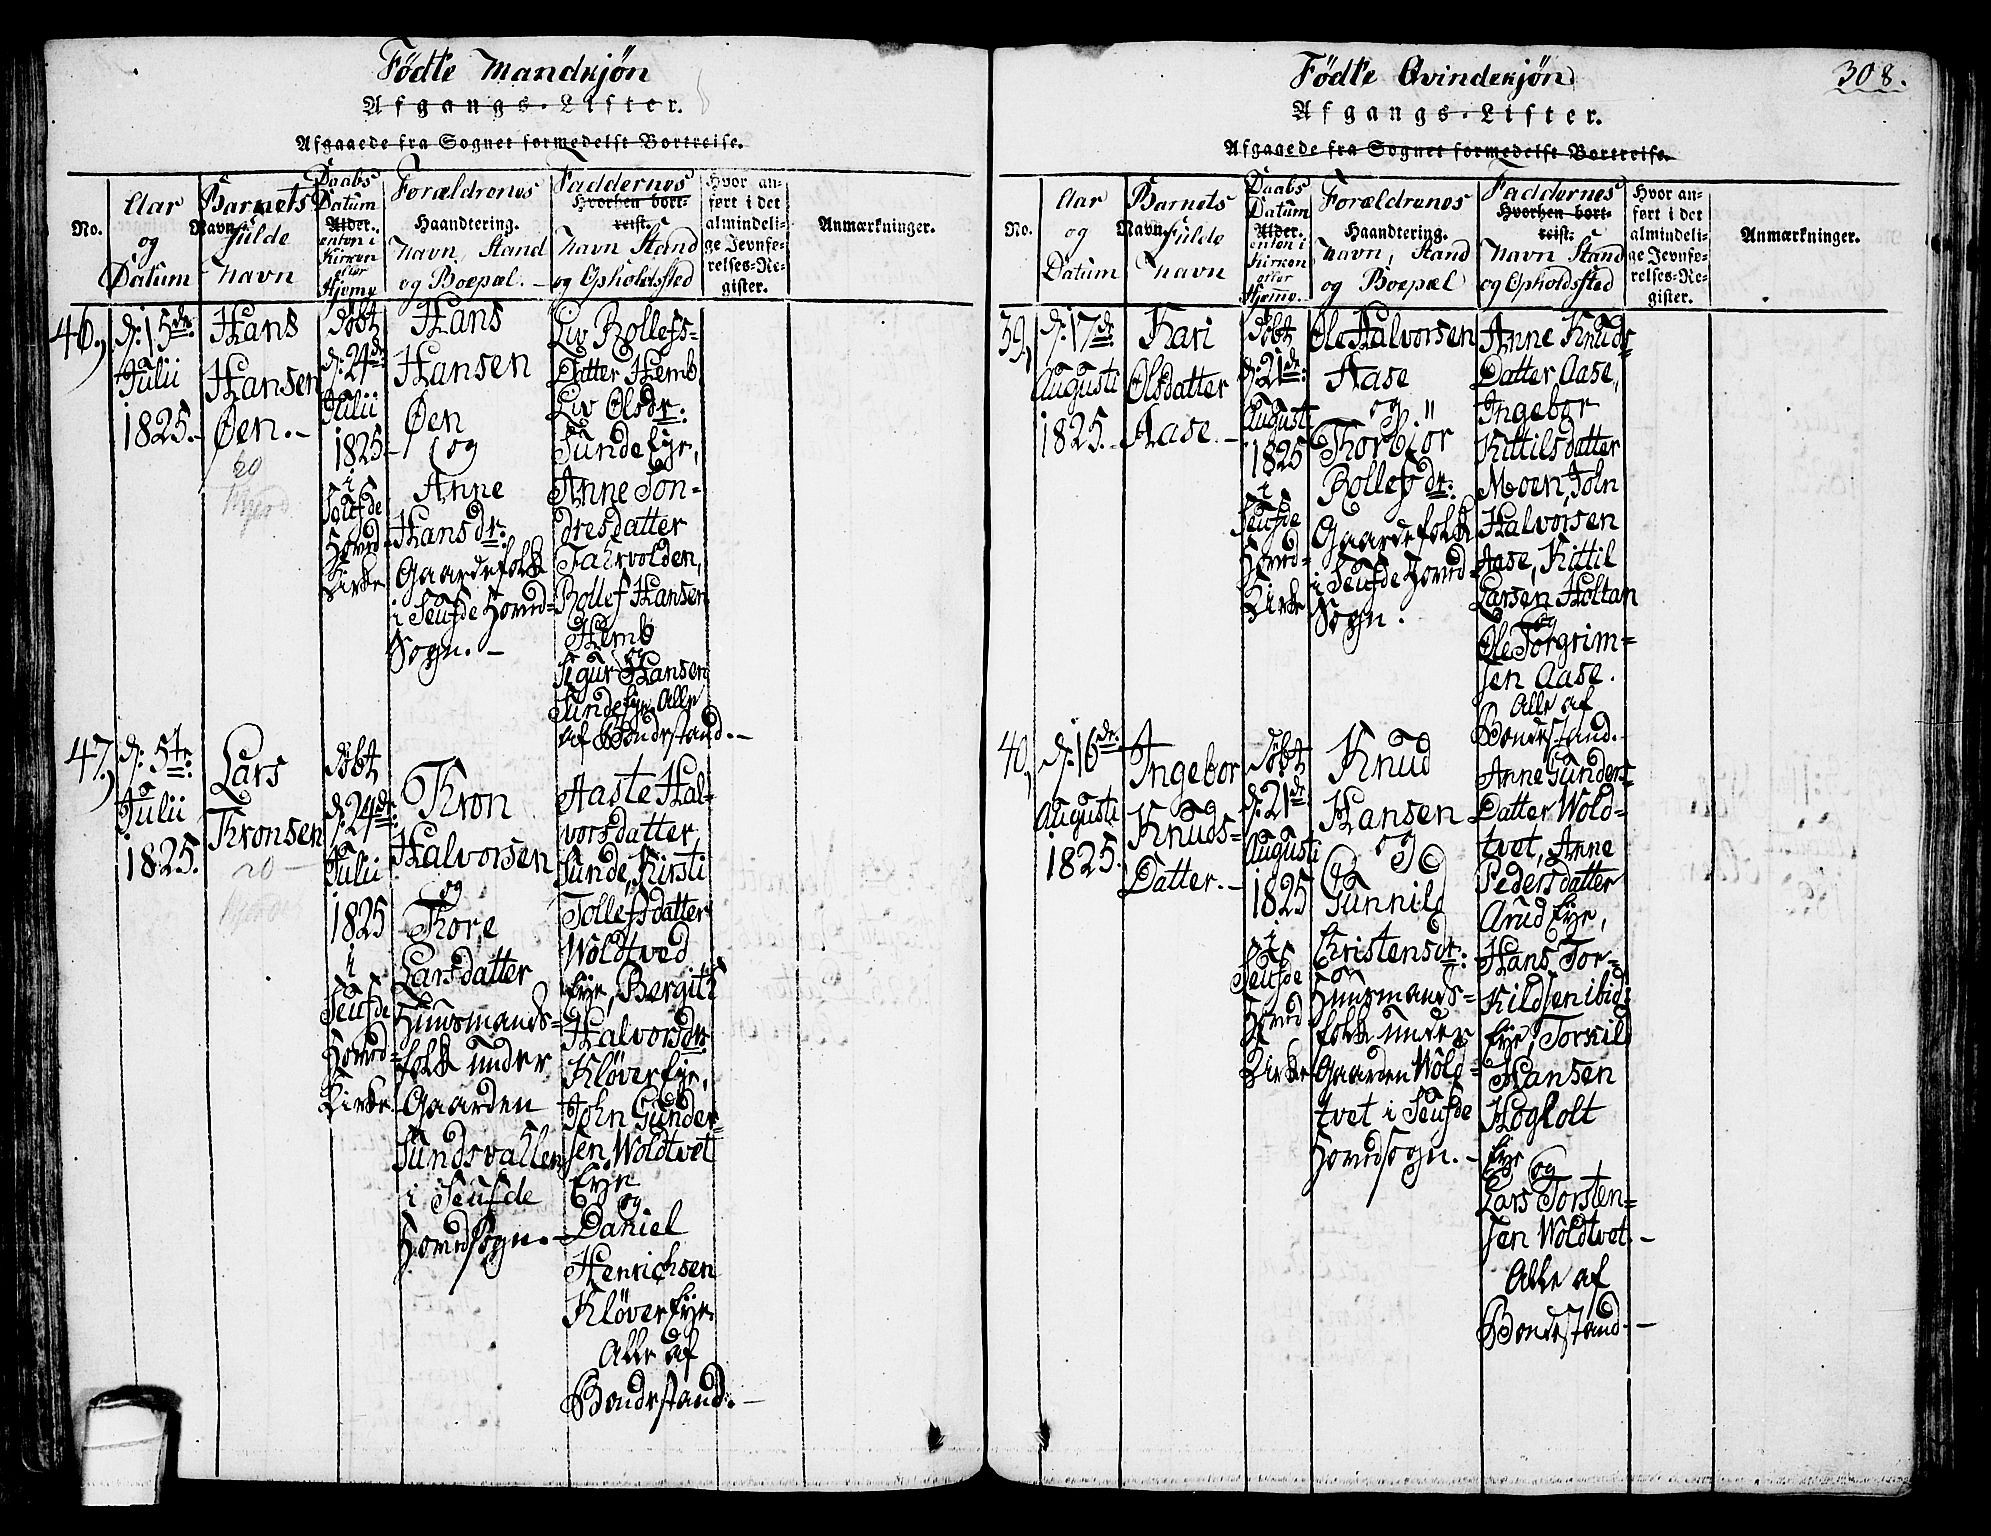 Fødte Mandkjøn
Afgangs-Lister.
Afgaaede fra Sognet formedelst Bortreise.
No.
Aar
og
Datum
Barnets
Navn.
fulde
Navn
Daabs
Datum
Alder.
enten i
Kirken
eller
Hjeme
Forældrenes
Haandtering.
Navn, Stand
og Boepæl.
Faddernes
Hvorhen bort-
reist.
Navn Stand
og Opholdsted
Hvor an-
ført i det
almindeli-
ge Jevnfø-
relses-Re-
gister.
Anmærkninger.
46,
d: 15de
Julii
1825.
Hans
Hansen
Øen.
døbt
d: 24de
Julii
1825
i
Seufde
Hoved-
Kirke
Hans
Hansen
Øen
og
Anne
Hansdr:
Gaardefolk
i Seufde Hoved-
Sogn.
Liv Rollefs-
Datter Hemb
Liv Olsdr:
Sunde Eye,
Anne Ton-
dresdatter
Fahrvolden,
Rollef Hansen
Hemb
og
Sigur Hansen
Sunde Eye Alle
af Bondestand.
47,
d: 5te:
Julii
1825.
Lars
Thronsen
døbt
d: 24de:
Julii
1825
i
Seufde
Hoved-
Kirke
Thron
Halvorsen
og
Thore
Larsdatter
Huusmands-
folk under
Gaarden
Sundsvallen
i Seufde
Hovedsogn.
Aaste Hal-
vorsdatter
Sunde, Kirsti
Tollefsdatter
Woldtved
Eye, Bergith
Halvorsdr
Kløver Eye,
John Gunder-
sen Woldtvet
Eye
og
Daniel
Henrichsen
Kløver Eye
Alle af
Bondestand.
Fødte Qvindekjøn
308.
Afgangs-Lister.
Afgaaede fra Sognet formedelst Bortreise.
No.
Aar
og
Datum
Barnets
Navn.
fulde
Navn
Daabs
Datum
Alder.
enten i
Kirken
eller
Hjeme.
Forældrenes
Haandtering.
Navn, Stand
og Boepæl
Faddernes
Hvorhen bort-
reist.
Navn Stand
og Opholdsted
Hvor an-
ført i det
almindeli-
ge Jevnfø-
relses-Re-
gister.
Anmærkninger.
39,
d: 17de
Augusti
1825.
Kari
Olsdatter
Aase.
døbt
d: 21de:
Augusti
1825
i
Seufde
Hoved-
Kirke
Ole Halvorsen
Aase
og
Thorbjør
Rollefsdr:
Gaardefolk
i Seufde Hoved-
Sogn.
Anne Knuds-
Datter Aase,
Ingebor
Kittilsdatter
Moen, John
Halvorsen
Aase, Kittil
Larsen Holtan
og
Ole Torgrim-
sen Aase.
Alle af
Bondestand.
40,
d: 16de
Augusti
1825.
Ingebor
Knuds-
Datter.
døbt
d: 21de
Augusti
1825
i
Seufde
Hoved-
Kirke
Knud
Hansen
og
Gunnild
Christensdr:
Huusmands-
folk under
Gaarden Wold-
tvet i Seufde
Hovedsogn.
Anne Gunders
Datter Wold-
tvet, Anne
Pedersdatter
Arud Eye,
Hans Tor-
kildsen ibid:
Eye, Torkild
Hansen
Hogholt
Eye
og
Lars Torsten-
sen Woldtvet.
Alle af
Bondestand.